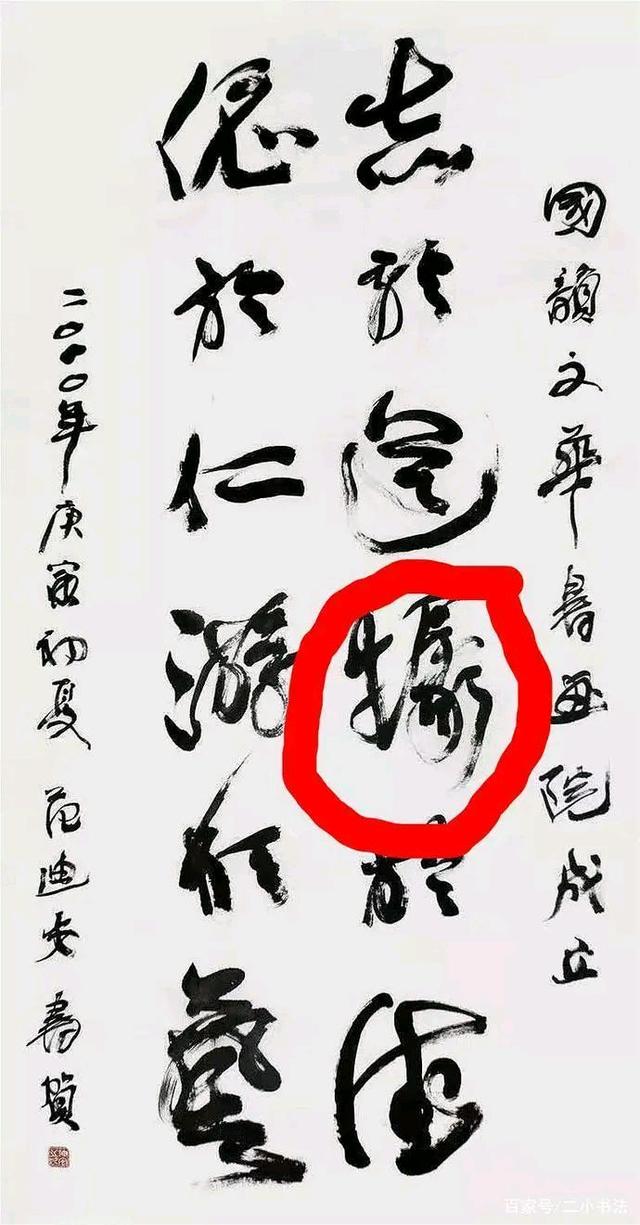 國韻文華書画院成立
志於道據於德
依於仁游於藝
二〇一〇年庚寅初夏 范迪安書賀
百家号/二小书法